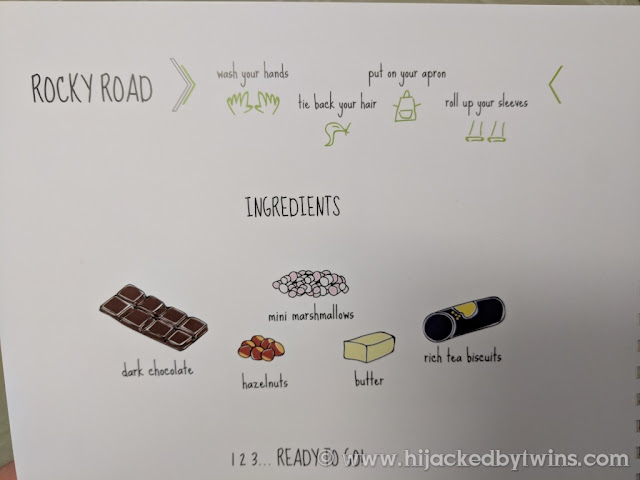 ROCKY ROAD
wash your hands
tie back your hair
put on your apron
roll up your sleeves
INGREDIENTS
dark chocolate
mini marshmallows
hazelnuts
butter
rich tea biscuits
1 2 3... READY TO GO!
© www.hijackedbytwins.com